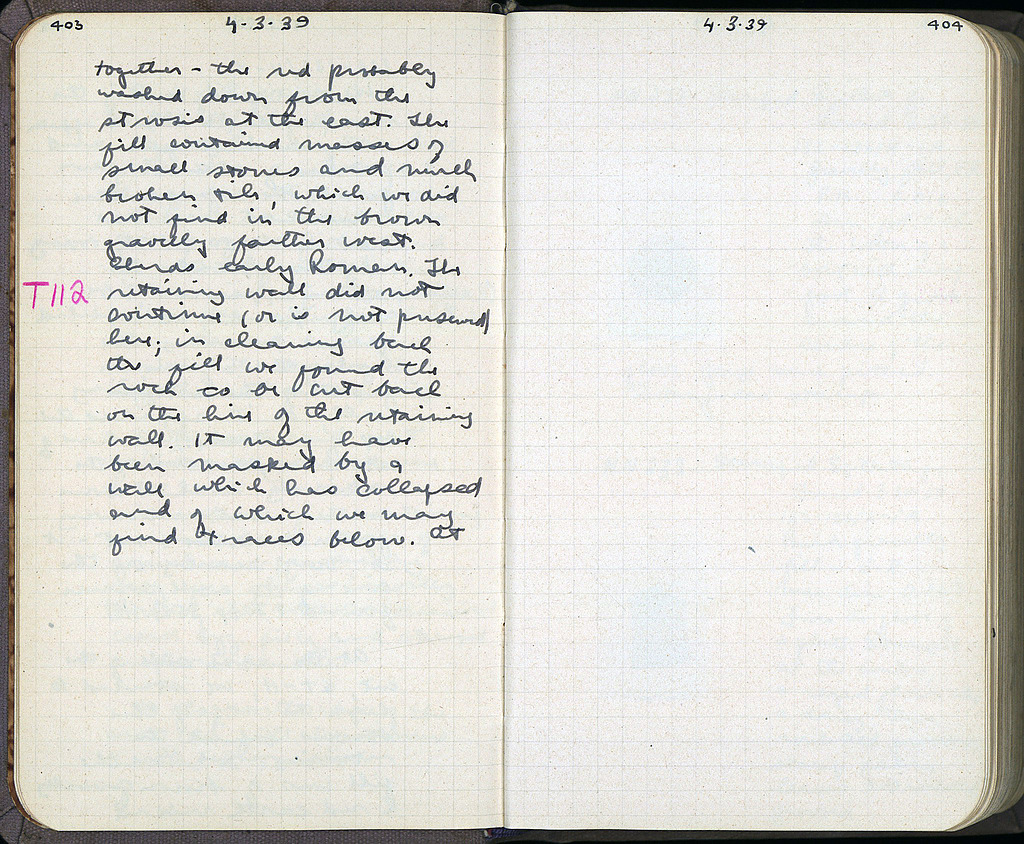 403
4-3-39
together - the red probably
washed down from the
strosis at the east. The
fill contained masses of
small stones and much
broken tile, which we did
not find in the brown
gravelly farther west.
Sherds early Roman. The
T112
retaining wall did not
continue (or is not preserved)
here; in clearing back
the fill we found the
rock to be cut back
on the line of the retaining
wall. It may have
been masked by a
wall which has collapsed
and of which we may
find traces below. At
4.3.39
404